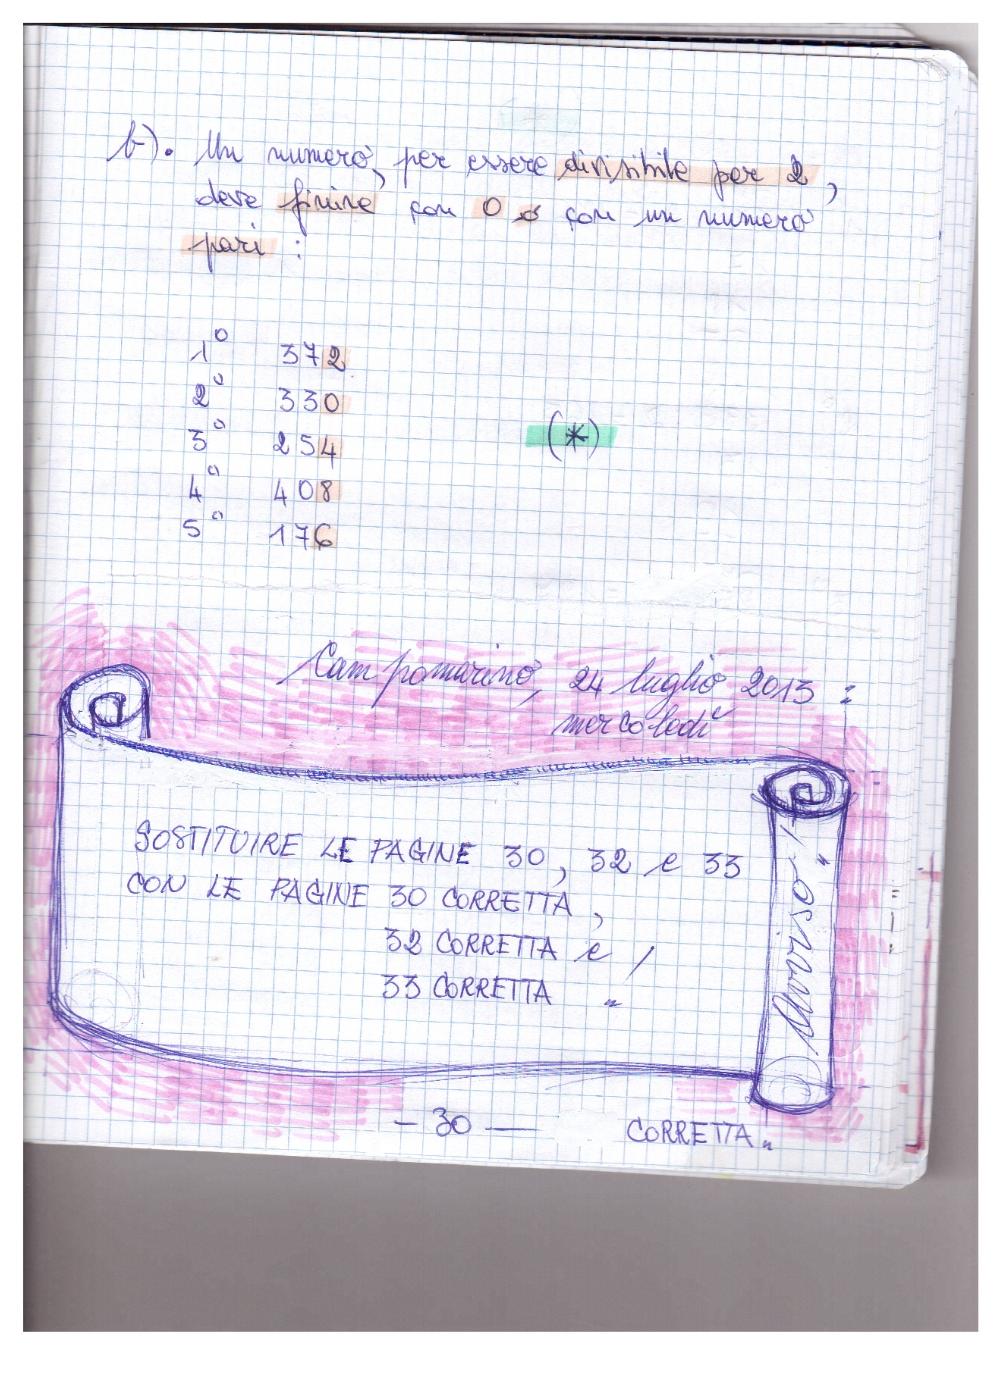 b). Un numero, per essere divisibile per 2,
deve finire con 0 o con un numero
pari :
1° 372
2° 330
3° 254
4° 408
5° 176
(*)
Campomarino, 24 luglio 2013 :
mercoledì
SOSTITUIRE LE PAGINE 30, 32 e 33
CON LE PAGINE 30 CORRETTA,
32 CORRETTA e /
33 CORRETTA "
Avviso !
- 30 — CORRETTA "